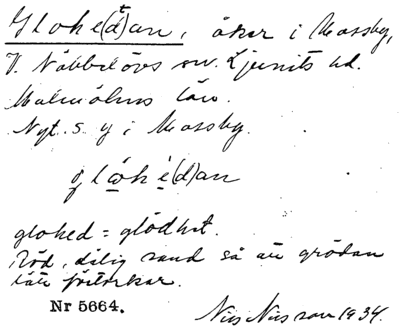 Glohe(d)an, åker i Massby,
V. Nöbbelövs sn. Ljunits hd.
Malmöhus län.
Nyt. s. y i Massby.
glohed = glödhet.
Röd, dålig sand så att grödan
lätt förtorkar.
Nr 5664.
Nils Nilsson 1934.